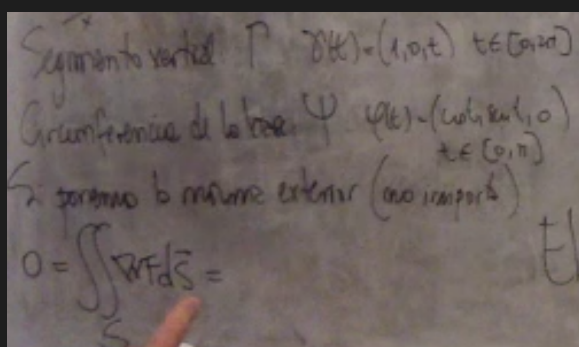 Segmento vertical Γ γ(t)=(1,0,t) t∈[0,2π]
Circunferencia de la base Ψ φ(t)=(cos t, sen t, 0)
t∈[0,π]
S ponemos la normal exterior (no importa)
0 = ∬ rot F d s⃗ =
S